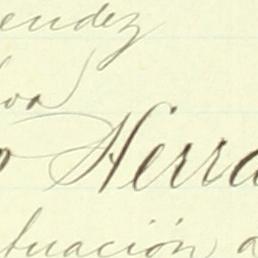 endez
va
o Herra
tuación a